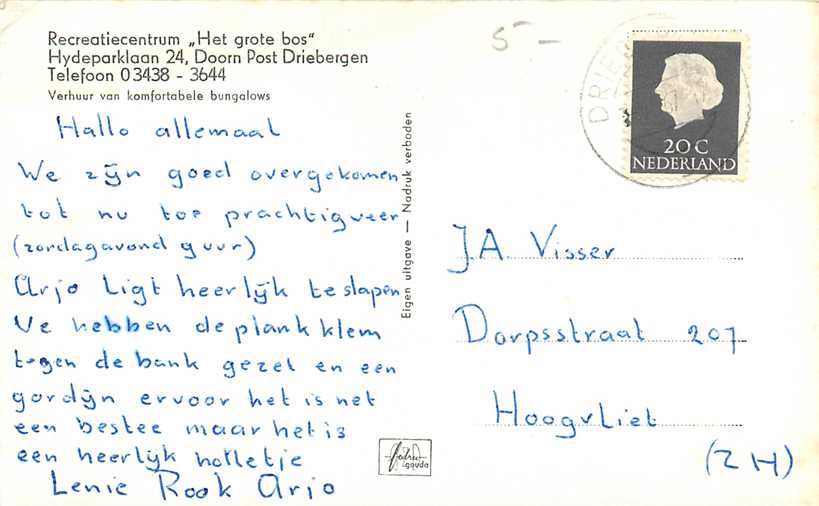 Recreatiecentrum „Het grote bos"
Hydeparklaan 24, Doorn Post Driebergen
Telefoon 03438 - 3644
Verhuur van komfortabele bungalows
Hallo allemaal
We zijn goed overgekomen
tot nu toe prachtig weer
(zondagavond 9 uur)
Arjo ligt heerlijk te slapen
We hebben de plank klem
tegen de bank gezet en een
gordijn ervoor het is net
een bestee maar het is
een heerlijk holletje
Lenie Rook Arjo
Eigen uitgave — Nadruk verboden
gouda
5 —
DRIE
20 C
NEDERLAND
J.A. Visser
Dorpsstraat 207
Hoogvliet
(ZH)